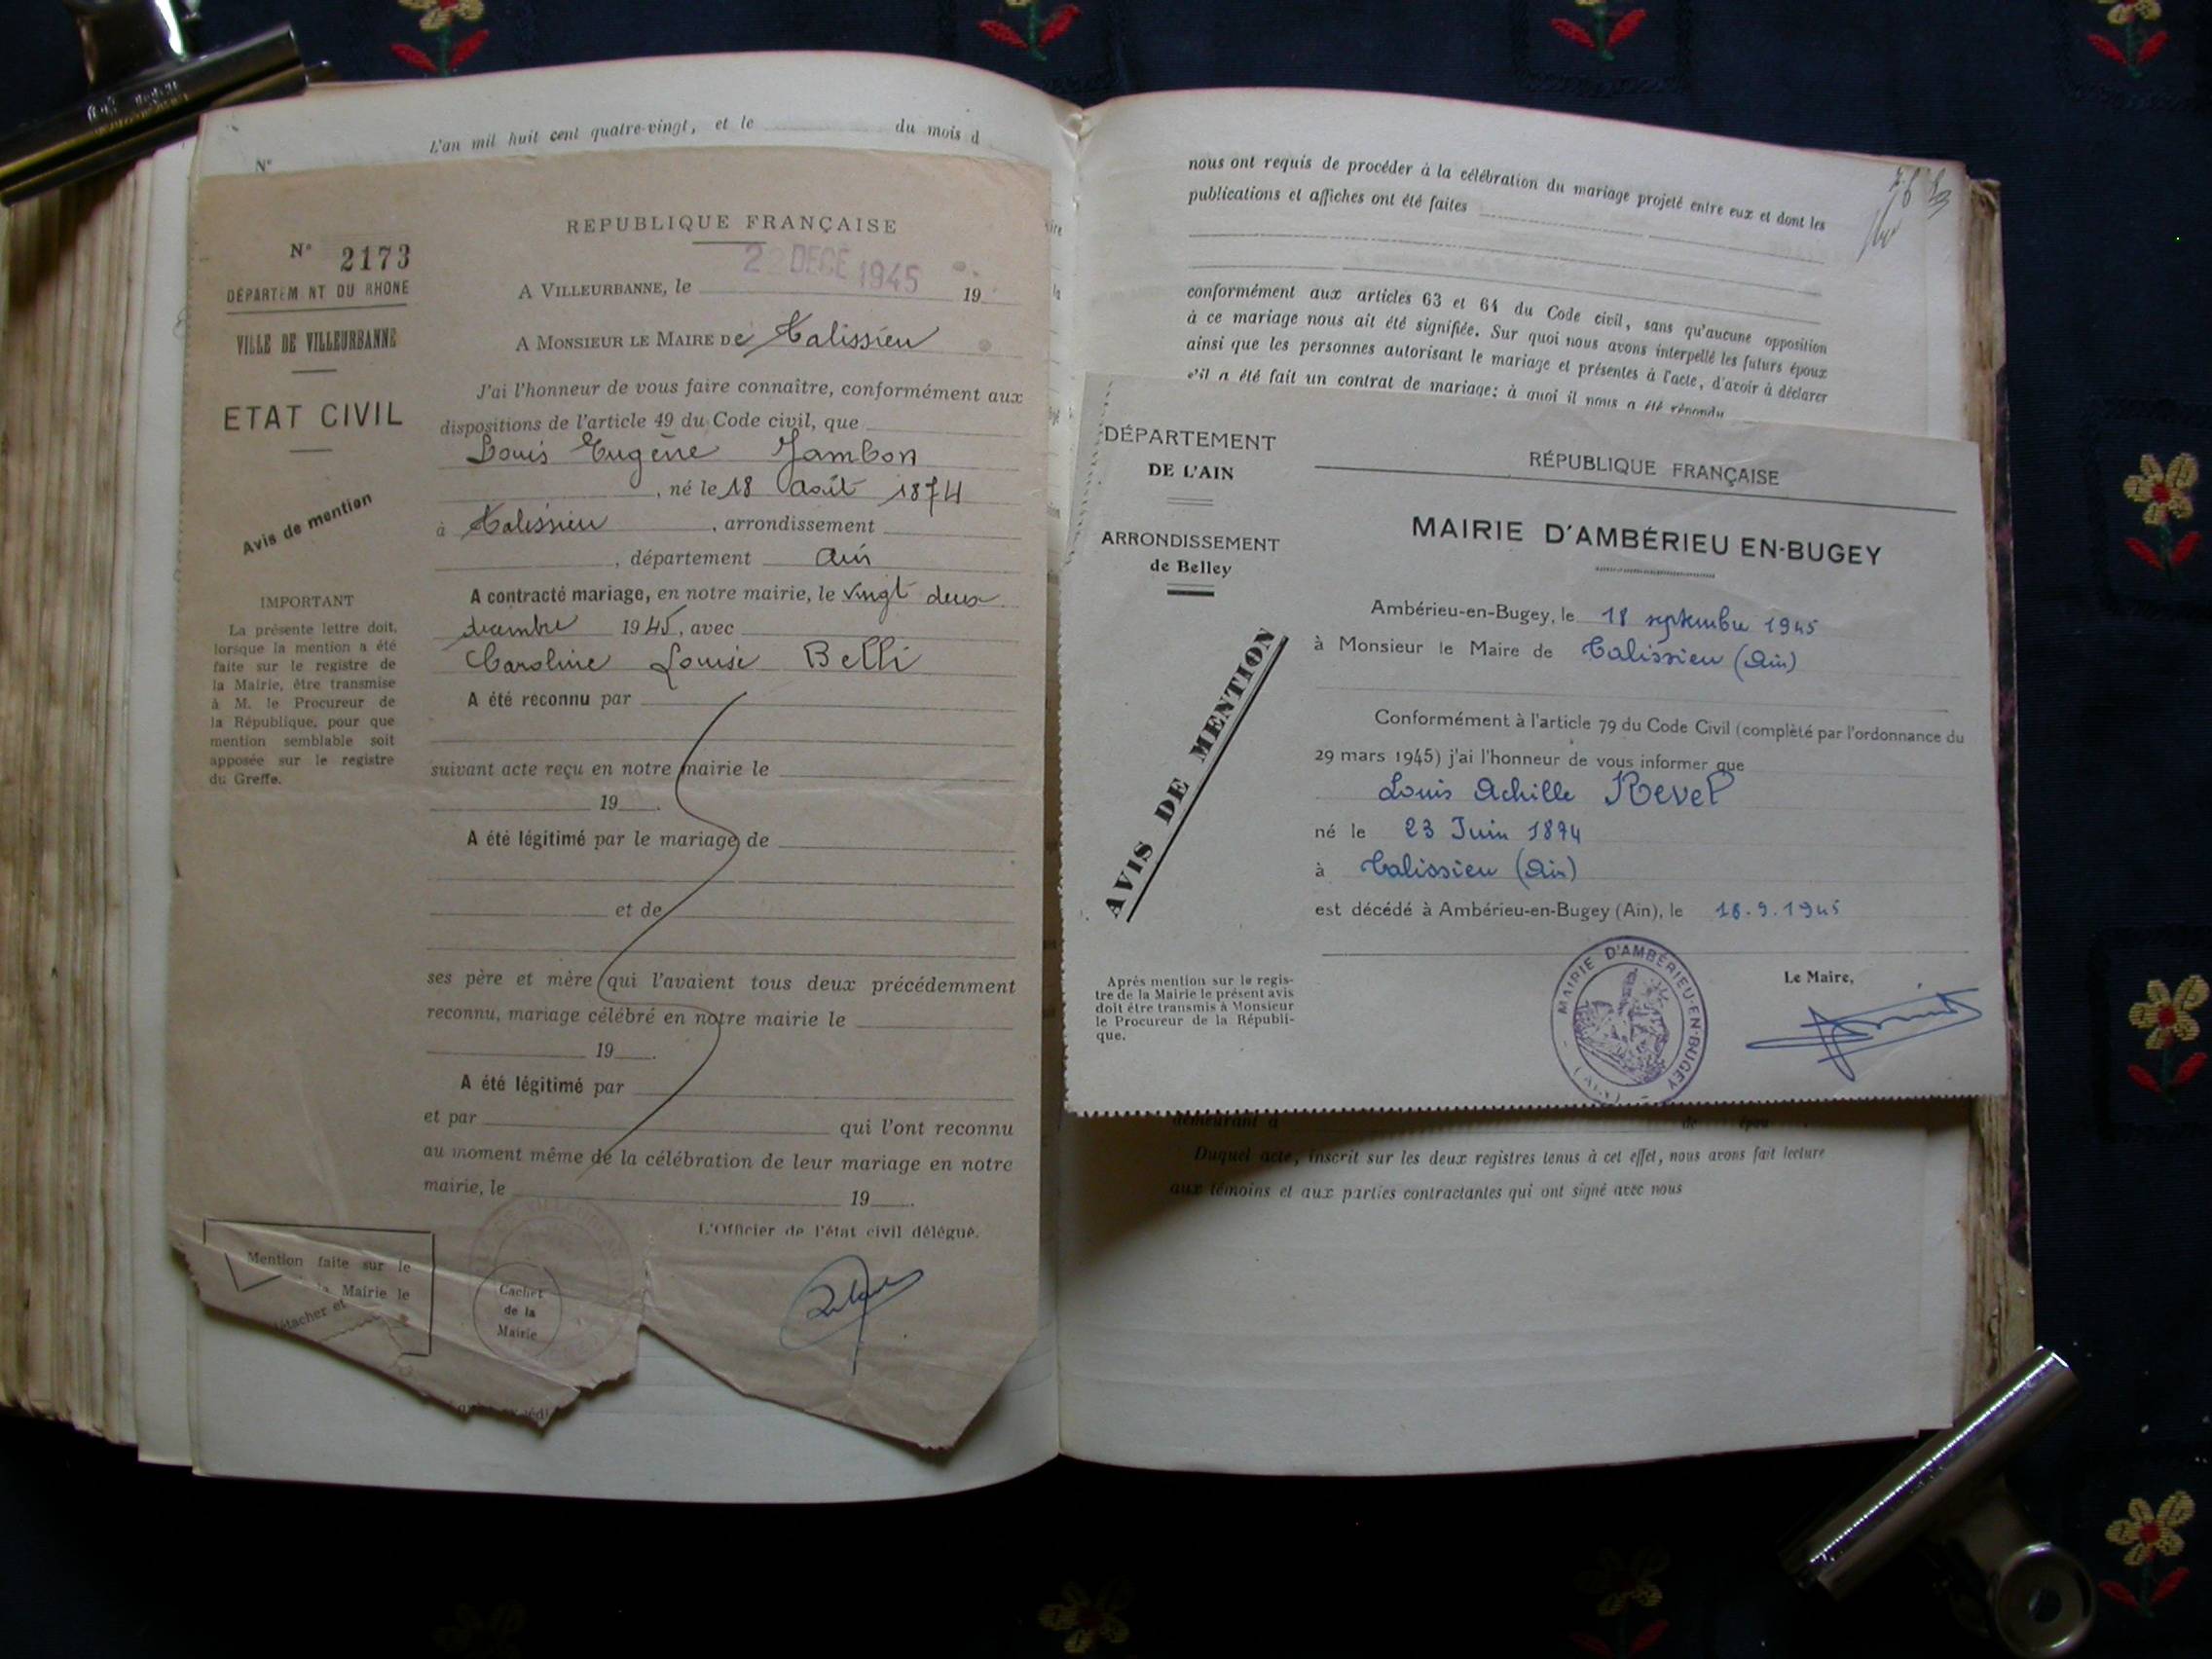 L'an mil huit cent quatre-vingt, et le du mois d
N°
N° 2173
DÉPARTEM NT DU RHONE
VILLE DE VILLEURBANNE
ETAT CIVIL
Avis de mention
IMPORTANT
La présente lettre doit,
lorsque la mention a été
faite sur le registre de
la Mairie, être transmise
à M. le Procureur de
la République, pour que
mention semblable soit
apposée sur le registre
du Greffe.
REPUBLIQUE FRANÇAISE
A VILLEURBANNE, le 2 DECE 1945 19
A MONSIEUR LE MAIRE De Talissieu
J'ai l'honneur de vous faire connaître, conformément aux
dispositions de l'article 49 du Code civil, que
Louis Eugène Jambon
, né le 18 Août 1874
à Talissieu , arrondissement
, département Ain
A contracté mariage, en notre mairie, le vingt deux
décembre 1945, avec
Caroline Louise Belli
A été reconnu par
suivant acte reçu en notre mairie le
19 .
A été légitimé par le mariage de
et de
ses père et mère qui l'avaient tous deux précédemment
reconnu, mariage célébré en notre mairie le
19 .
A été légitimé par
et par qui l'ont reconnu
au moment même de la célébration de leur mariage en notre
mairie, le 19 .
L'Officier de l'état civil délégué.
Mention faite sur le
la Mairie le
détacher et
Cachet
de la
Mairie
nous ont requis de procéder à la célébration du mariage projeté entre eux et dont les
publications et affiches ont été faites
conformément aux articles 63 et 64 du Code civil, sans qu'aucune opposition
à ce mariage nous ait été signifiée. Sur quoi nous avons interpellé les futurs époux
ainsi que les personnes autorisant le mariage et présentes à l'acte, d'avoir à déclarer
s'il a été fait un contrat de mariage; à quoi il nous a été répondu
DÉPARTEMENT
DE L'AIN
ARRONDISSEMENT
de Belley
AVIS DE MENTION
Après mention sur le regis-
tre de la Mairie le présent avis
doit être transmis à Monsieur
le Procureur de la Républi-
que.
RÉPUBLIQUE FRANÇAISE
MAIRIE D'AMBÉRIEU EN-BUGEY
Ambérieu-en-Bugey, le 18 septembre 1945
à Monsieur le Maire de Talissieu (Ain)
Conformément à l'article 79 du Code Civil (complèté par l'ordonnance du
29 mars 1945) j'ai l'honneur de vous informer que
Louis Achille Revel
né le 23 Juin 1894
à Talissieu (Ain)
est décédé à Ambérieu-en-Bugey (Ain), le 18.9.1945
Le Maire,
MAIRIE D'AMBÉRIEU-EN-BUGEY
(AIN)
demeurant à de
Duquel acte, inscrit sur les deux registres tenus à cet effet, nous avons fait lecture
aux témoins et aux parties contractantes qui ont signé avec nous